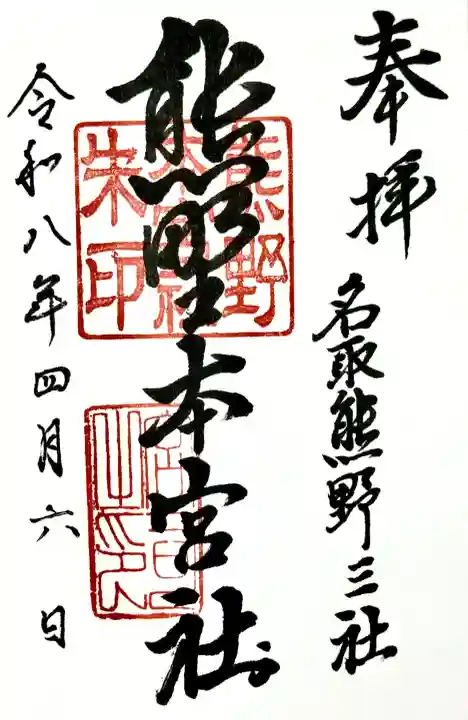 奉拝
名取熊野三社
熊野本宮社
令和八年四月六日
熊野
朱印